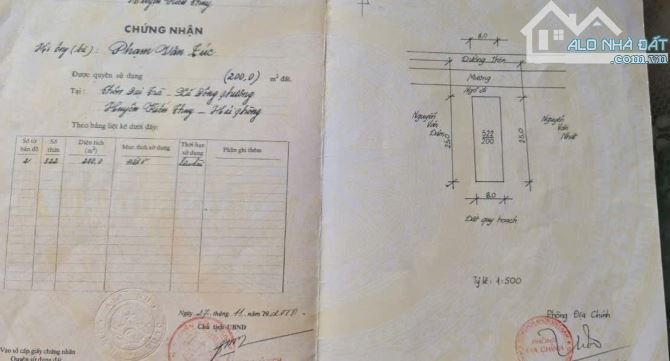 CHỨNG NHẬN
Hộ ông (bà): Phạm Văn Túc
Được quyền sử dụng (200,0) m² đất.
Tại : Thôn Đại Trà - Xã Đông Phương
Huyện Kiến Thụy - Hải Phòng
Theo bảng liệt kê dưới đây:
Số tờ bản đồ
Số thửa
Diện tích (m²)
Mục đích sử dụng
Thời hạn sử dụng
Phần ghi thêm
522 200,0 Lâu dài
Ngày 27 tháng 11 năm 2000
Chủ tịch UBND
Vào sổ cấp giấy chứng nhận
Quyền sử dụng đất
ALO NHÀ ĐẤT
8,0
Đường Thôn
Mương
Ngõ đi
Nguyễn Văn
25,0
522
200
25,0
Nguyễn Văn Nhất
8,0
Đất quy hoạch
Tỷ lệ: 1:500
Phòng Địa Chính
PHÒNG
ĐỊA CHÍNH